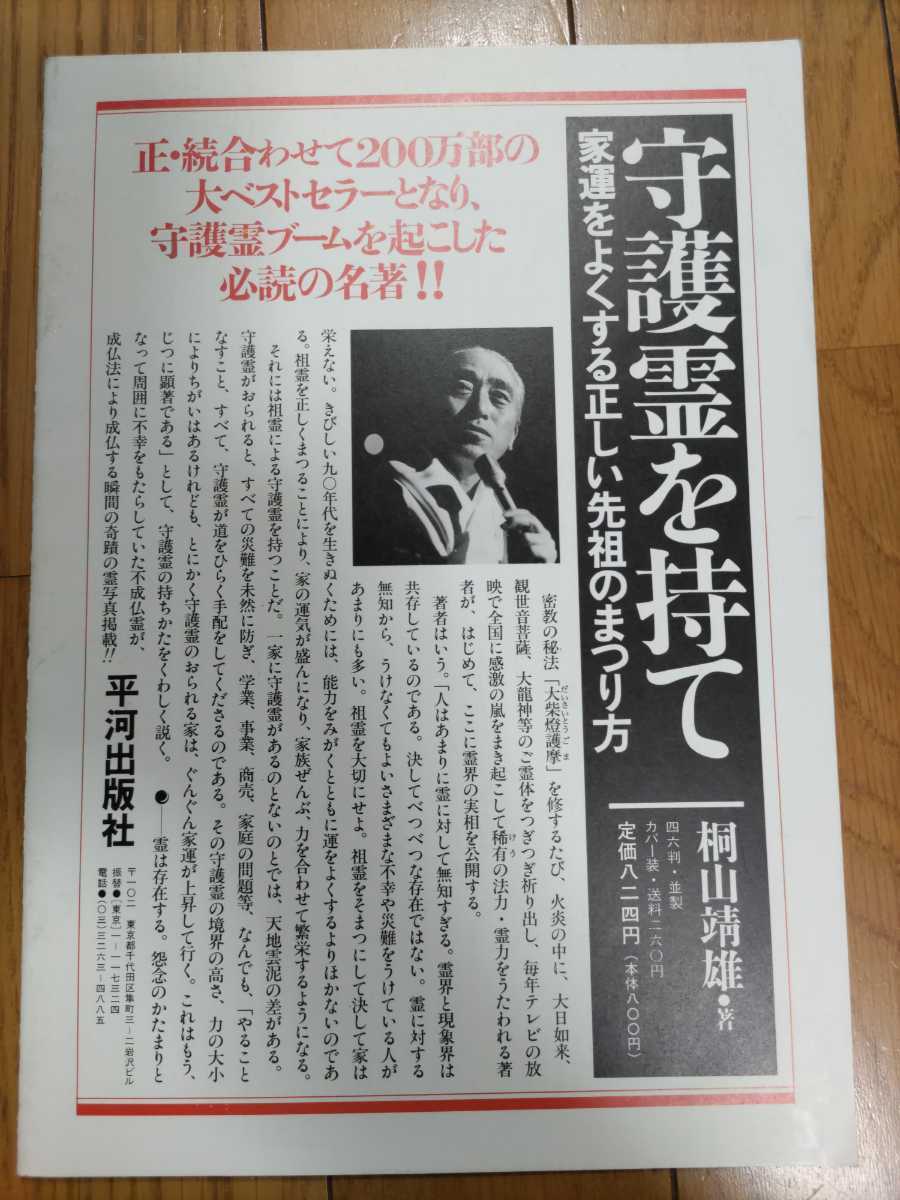 守護霊を持て
家運をよくする正しい先祖のまつり方
桐山靖雄●著
四六判・並製
カバー装・送料二六〇円
定価八二四円(本体八〇〇円)
正・続合わせて200万部の
大ベストセラーとなり、
守護霊ブームを起こした
必読の名著!!
密教の秘法「大柴燈護摩」を修するたび、火炎の中に、大日如来、
だいさいとうごま
観世音菩薩、大龍神等のご霊体をつぎつぎ祈り出し、毎年テレビの放
映で全国に感激の嵐をまき起こして稀有の法力・霊力をうたわれる著
けう
者が、はじめて、ここに霊界の実相を公開する。
著者はいう。「人はあまりに霊に対して無知すぎる。霊界と現象界は
共存しているのである。決してべつべつな存在ではない。霊に対する
無知から、うけなくてもよいさまざまな不幸や災難をうけている人が
あまりにも多い。祖霊を大切にせよ。祖霊をそまつにして決して家は
栄えない。きびしい九〇年代を生きぬくためには、能力をみがくとともに運をよくするよりほかないのであ
る。祖霊を正しくまつることにより、家の運気が盛んになり、家族ぜんぶ、力を合わせて繁栄するようになる。
それには祖霊による守護霊を持つことだ。一家に守護霊があるのとないのとでは、天地雲泥の差がある。
守護霊がおられると、すべての災難を未然に防ぎ、学業、事業、商売、家庭の問題等、なんでも、「やること
なすこと、すべて、守護霊が道をひらく手配をしてくださるのである。その守護霊の境界の高さ、力の大小
によりちがいはあるけれども、とにかく守護霊のおられる家は、ぐんぐん家運が上昇して行く。これはもう、
じつに顕著である」として、守護霊の持ちかたをくわしく説く。 ●──霊は存在する。怨念のかたまりと
なって周囲に不幸をもたらしていた不成仏霊が、
成仏法により成仏する瞬間の奇蹟の霊写真掲載!!
平河出版社
〒一〇二 東京都千代田区隼町三−二岩沢ビル
振替●[東京]一−一一七三二四
電話●(〇三)三二六三−四八八五